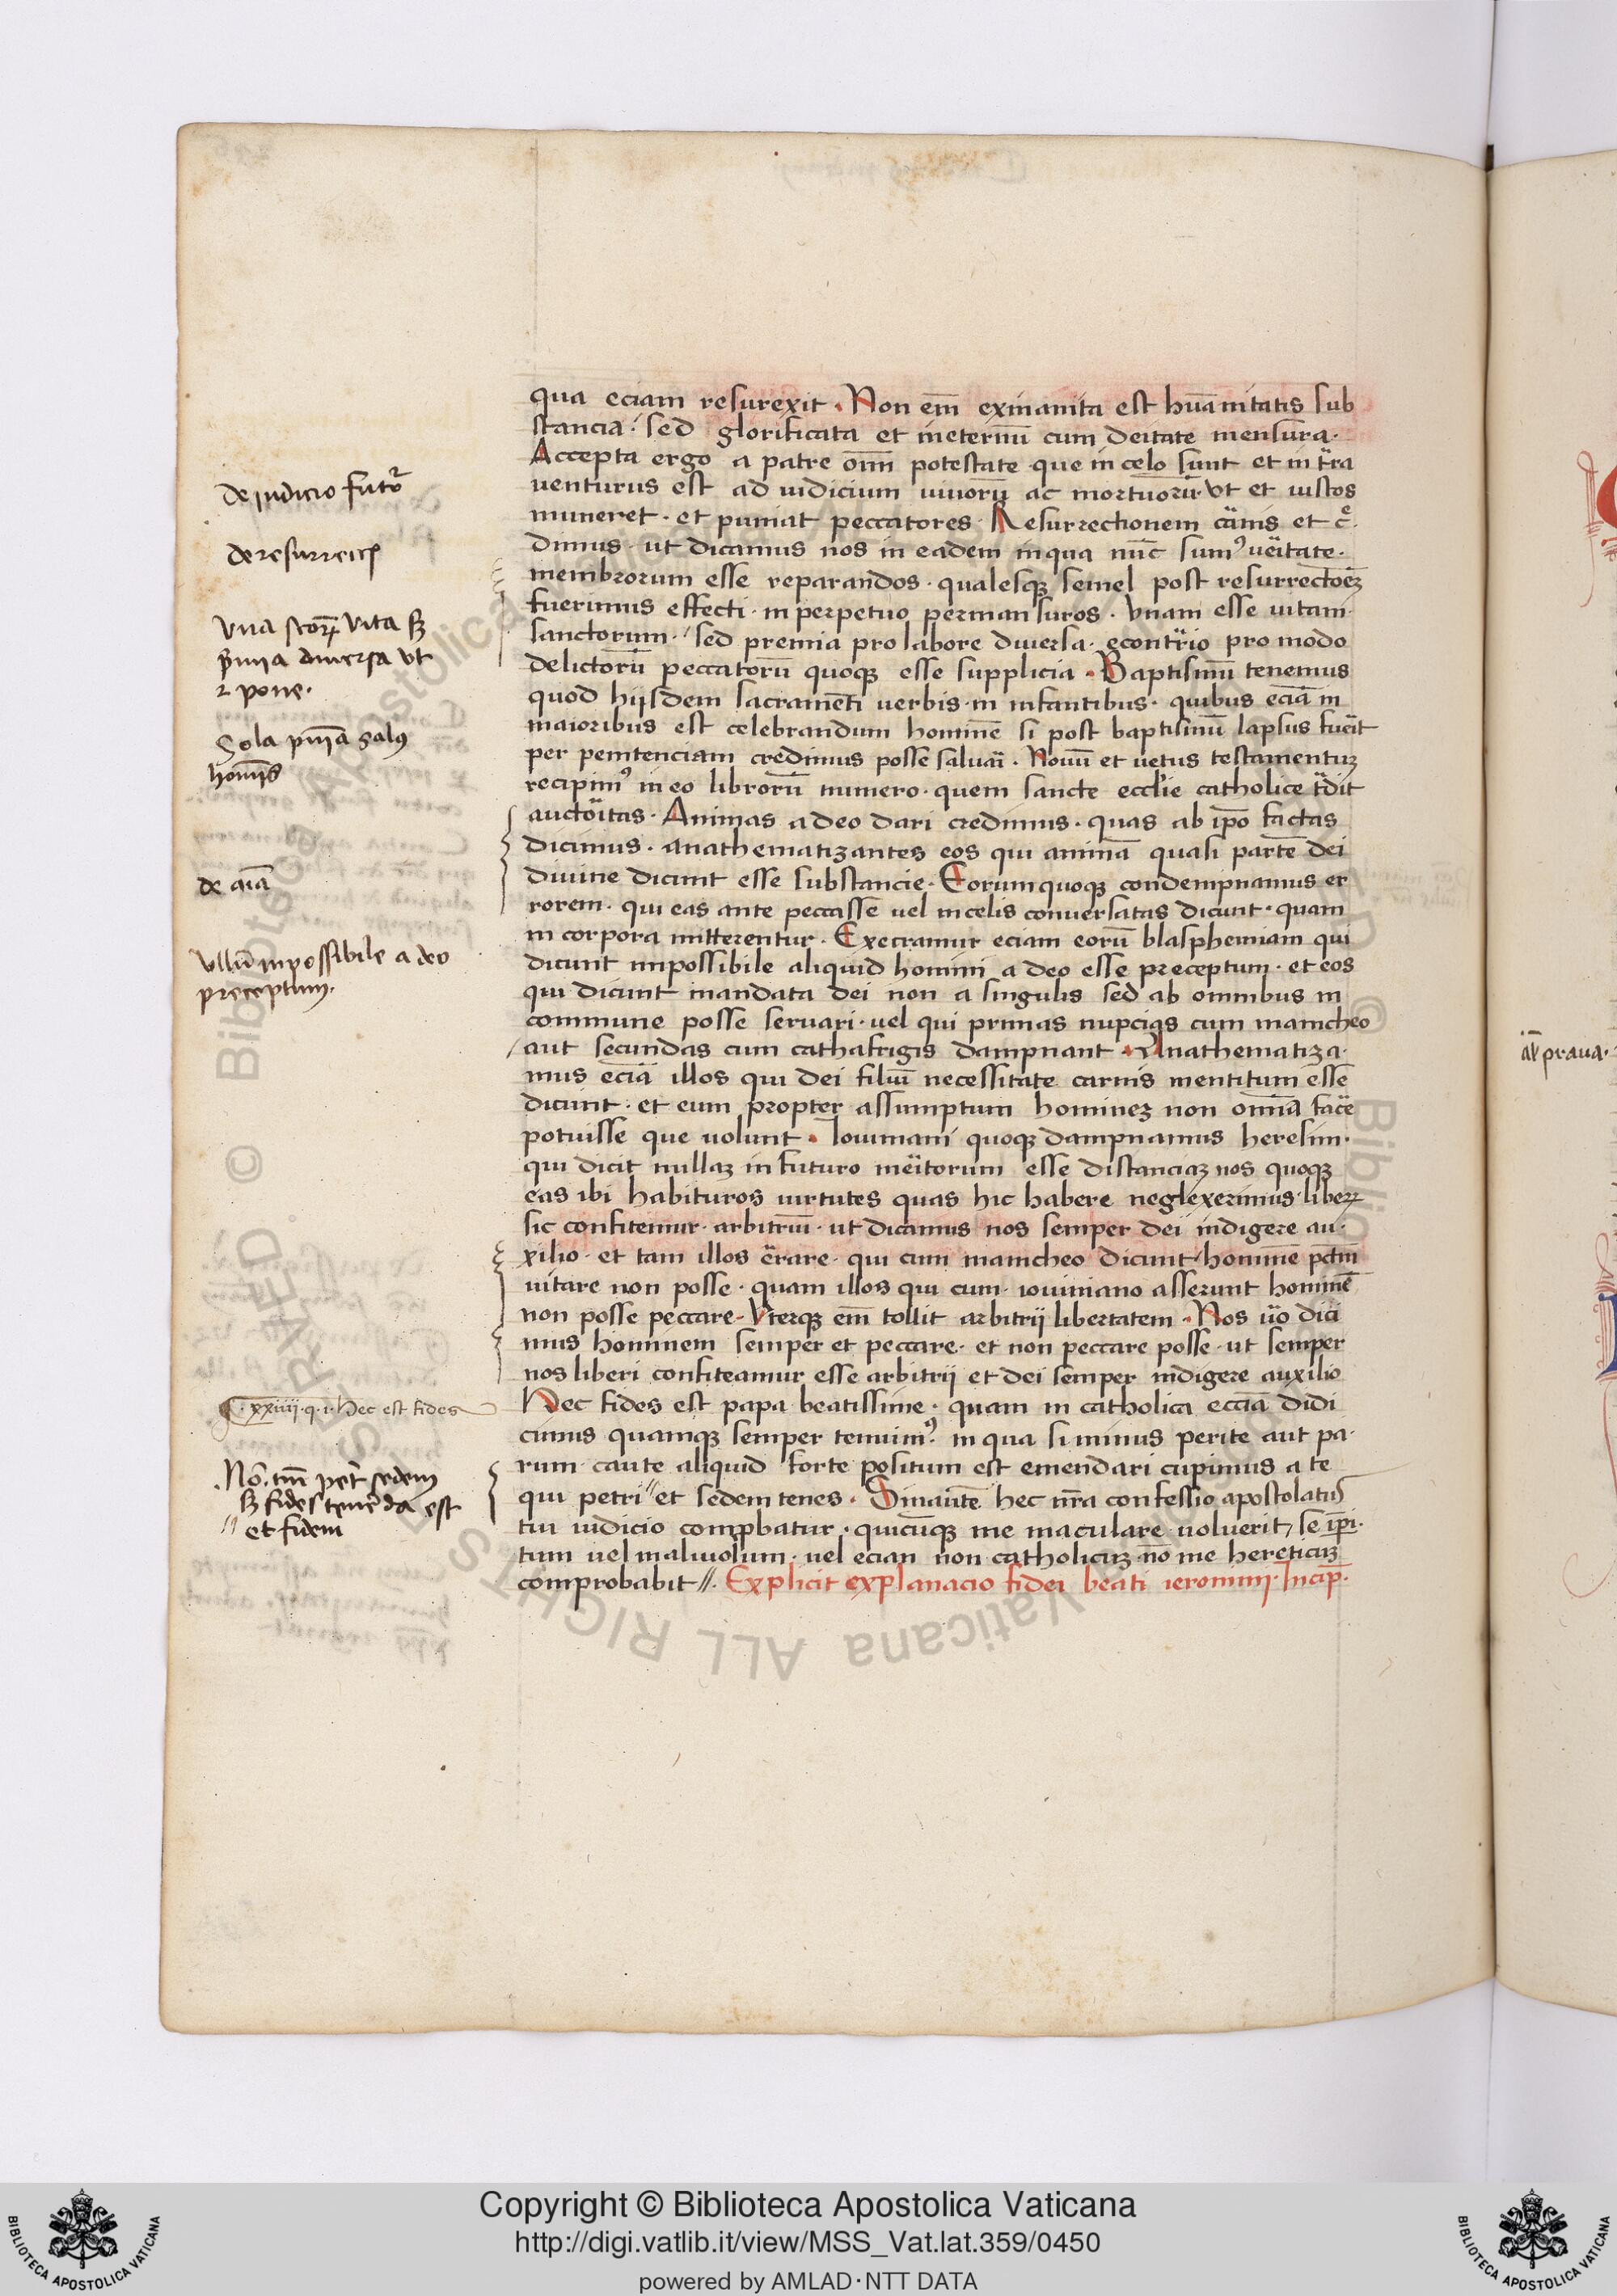 qua eciam resurexit · Non em̄ exinanita est hūanitatis sub
stancia · sed glorificata et ineternū cum deitate mensura ·
Accepta ergo a patre oīm potestate que in celo sunt et in t̄ra
uenturus est ad iudicium uiuorū ac mortuorū · Vt et iustos
muneret · et puniat peccatores · Resurrectionem carnis et c̄e
dimus · ut dicamus nos in eadem inqua nūc sumꝰ ūeitate ·
membrorum esse reparandos · qualesqꝫ semel post resurrectōeꝫ
fuerimus effecti · in perpetuo permansuros · Vnam esse uitam ·
sanctorum · sed premia pro labore diuersa · econt̄rio pro modo
delictorū peccatorū quoqꝫ esse supplicia · Baptismū tenemus
quod hijsdem sacramēti uerbis · in infantibus · quibus eciā in
maioribus est celebrandum hominē si post baptismū lapsus fuēit
per penitenciam credimus posse saluāi · Nouū et uetus testamentuꝫ
recipimꝰ in eo librorū numero · quem sancte eccl̄ie catholice t̄dit
auctōitas · Animas a deo dari credimus · quas ab ip̄o factas
dicimus · anathematizantes eos qui animā quasi partē dei
diuine dicunt esse substancie · Eorumquoqꝫ condempnamus er
rorem · qui eas ante peccasse uel in celis conuersatas dicunt · quam
in corpora mitterentur · Execramur eciam eorū blasphemiam qui
dicunt impossibile aliquid homini a deo esse preceptum · et eos
qui dicunt mandata dei non a singulis sed ab omnibus in
commune posse seruari · uel qui primas nupcias cum manicheo
aut secundas cum cathafrigis dampnant · Anathematiza
mus eciā illos qui dei filiū necessitate carnis mentitum esse
dicunt · et eum propter assumptum homineꝫ non omīa facē
potuisse que uolunt · Iouiniani quoqꝫ dampnamus heresim ·
qui dicit nullaꝫ in futuro mēitorum esse distanciaꝫ nos quoqꝫ
eas ibi habituros uirtutes quas hic habere neglexerimus · liberꝫ
sic confitemur · arbitriū · ut dicamus nos semper dei indigere au
xilio · et tam illos ērare · qui cum manicheo dicunt hominē pctm̄
uitare non posse · quam illos qui cum · iouiniano asserunt hominē
non posse peccare · Vterqꝫ em̄ tollit arbitrij libertatem · Nos ūo dici
mus hominem semper et peccare · et non peccare posse · ut semper
nos liberi confiteamur esse arbitrij et dei semper indigere auxilio
Hec fides est papa beatissime · quam in catholica eccīa didi
cimus quamqꝫ semper tenuimꝰ · in qua si minus perite aut pa
rum · caute aliquid forte positum est emendari cupimus a te
qui petri // et sedem tenes · Sinautē hec nr̄a confessio apostolatus
tui iudicio comp̄batur · quicūqꝫ me maculare uoluerit, se īpi
tum uel maliuolum · uel ecian non catholicuꝫ · nō me hereticuꝫ
comprobabit // · Explicit explanacio fidei beati ieronimi · Incip̄ ·
de iudicio futōr
de resurreicō
Vna scōrꝫ vita sꝫ
p̄mia diuersa vt
ꝛ pone ·
Sola pniā salꝰ
homīs
de aīa
Vllū inpossibile a deo
preceptum ·
C · xxiiij · q · i · Hec est fides
Nō · tm̄ pet̄ sedem
sꝫ fides tenēda est
// et fidem
al̄ praua ·
Copyright © Biblioteca Apostolica Vaticana
http://digi.vatlib.it/view/MSS_Vat.lat.359/0450
powered by AMLAD·NTT DATA
BIBLIOTECA APOSTOLICA VATICANA
BIBLIOTECA APOSTOLICA VATICANA